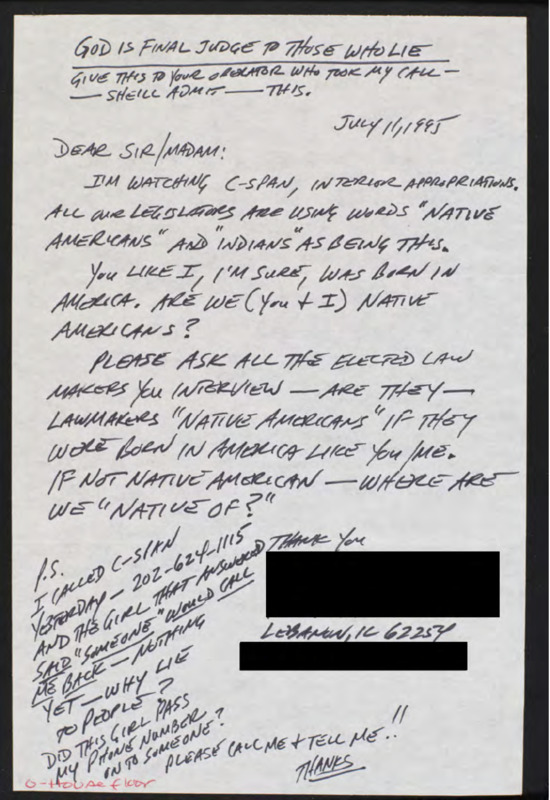 GOD IS FINAL JUDGE TO THOSE WHO LIE
GIVE THIS TO YOUR OPERATOR WHO TOOK MY CALL —
— SHEILL ADMIT — THIS.
JULY 11, 1995
DEAR SIR/MADAM:
I'M WATCHING C-SPAN, INTERIOR APPROPRIATIONS.
ALL OUR LEGISLATORS ARE USING WORDS "NATIVE
AMERICANS" AND "INDIANS" AS BEING THIS.
YOU LIKE I, I'M SURE, WAS BORN IN
AMERICA. ARE WE (YOU + I) NATIVE
AMERICANS?
PLEASE ASK ALL THE ELECTED LAW
MAKERS YOU INTERVIEW — ARE THEY —
LAWMAKERS "NATIVE AMERICANS" IF THEY
WERE BORN IN AMERICA LIKE YOU/ME.
IF NOT NATIVE AMERICAN — WHERE ARE
WE "NATIVE OF?"
THANK YOU
LEBANON, IL 62254
P.S.
I CALLED C-SPAN
YESTERDAY — 202-624-1115
AND THE GIRL THAT ANSWERED
SAID "SOMEONE" WOULD CALL
ME BACK — NOTHING
YET — WHY LIE
TO PEOPLE?
DID THIS GIRL PASS
MY PHONE NUMBER
ON TO SOMEONE?
PLEASE CALL ME + TELL ME!!
THANKS
O-HOUSE floor